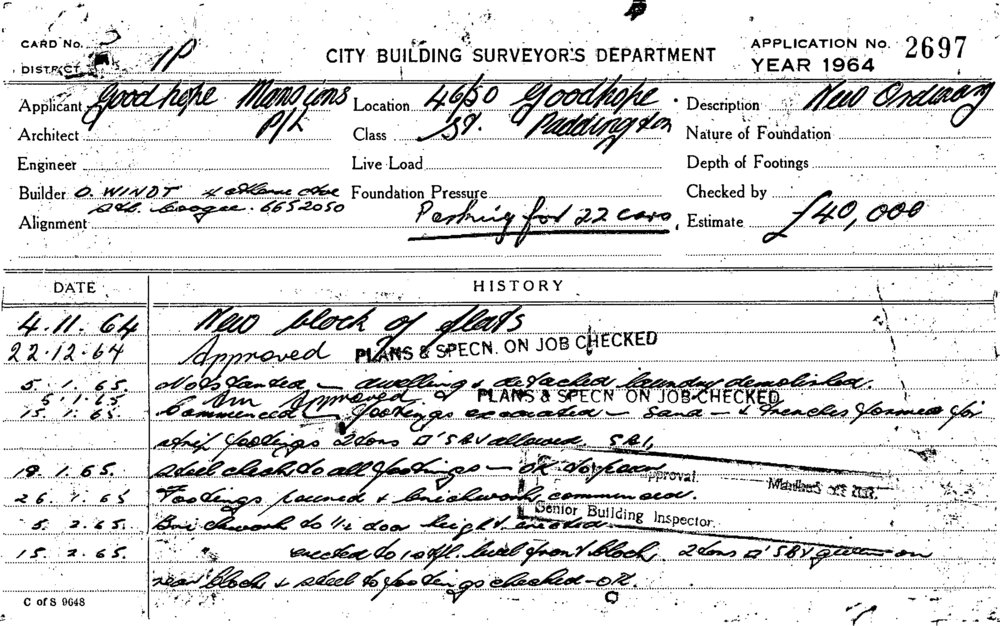 CARD No.
DISTRICT 1P
CITY BUILDING SURVEYOR'S DEPARTMENT
APPLICATION No. 2697
YEAR 1964
Applicant Goodhope Mansions P/L
Location 46/50 Goodhope St. Paddington
Description New Ordinary
Architect
Class
Nature of Foundation
Engineer
Live Load
Depth of Footings
Builder O. WINDT 4 Ave
Sth. Coogee. 6652050
Foundation Pressure
Checked by
Alignment
Parking for 22 cars
Estimate £40,000
DATE HISTORY
4.11.64 New block of flats
22.12.64 Approved PLANS & SPECN. ON JOB CHECKED
5.1.65. Not started — dwelling & detached laundry demolished.
5.1.65 Approved. PLANS & SPECN ON JOB CHECKED
15.1.65. Commenced — footings excavated — sand — & trenches formed for
strip footings 2 tons allowed
19.1.65. Steel check to all footings — OK to pour
Approval.
26.1.65 Footings poured & brickwork commenced.
Senior Building Inspector.
5.2.65. Brickwork to 1/2 door height erected
15.2.65. erected to 1st fl. level front block, 2 tons given on
rear block & steel to footings checked — OK.
C of S 9648